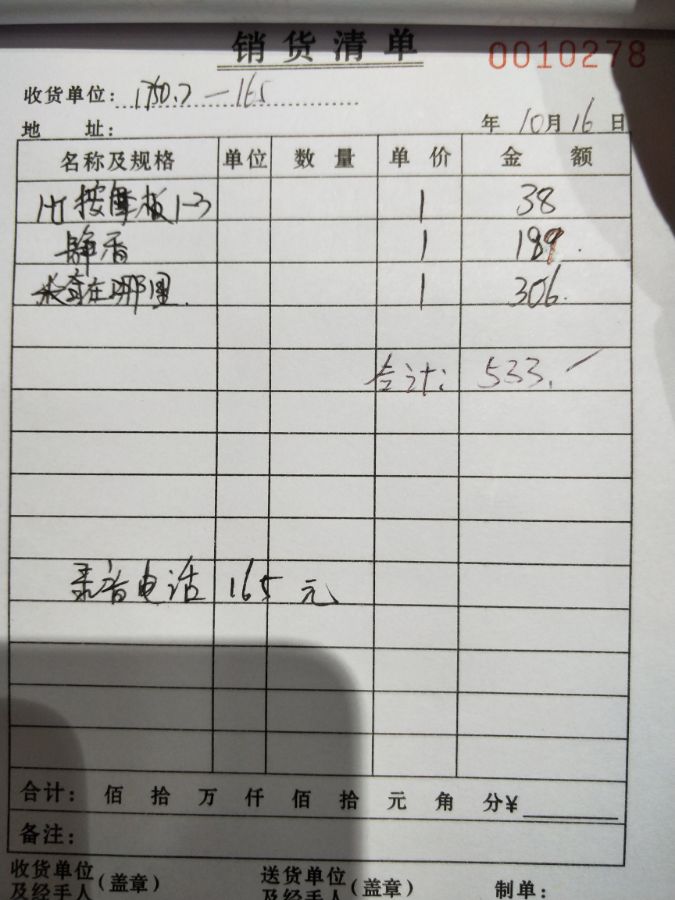 销货清单
0010278
收货单位: 1750.7 — 165
地 址: 年 10 月 16 日
名称及规格 单位 数量 单价 金额
按摩板1-3 1 38
静香 1 189.
在哪里. 1 306.
合计: 533.
录音电话 165 元
合计: 佰 拾 万 仟 佰 拾 元 角 分¥
备注:
收货单位及经手人(盖章) 送货单位及经手人(盖章) 制单: